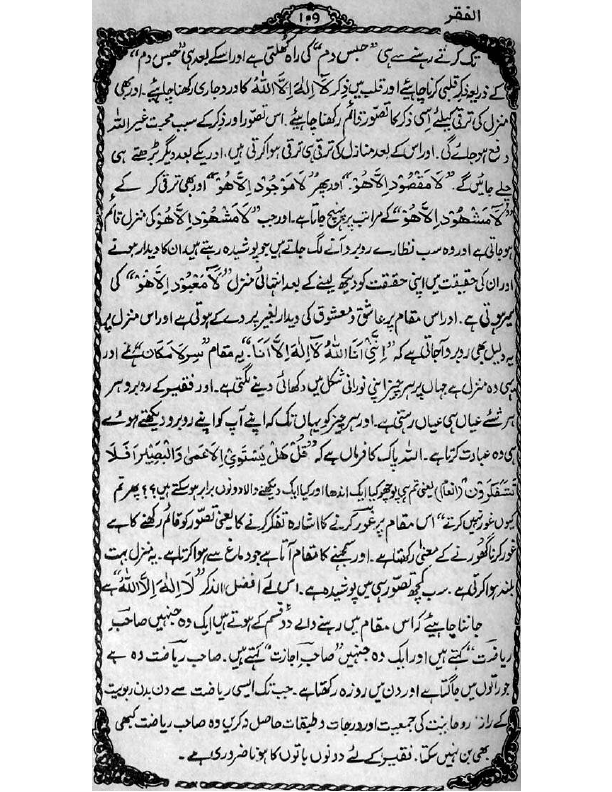 الفقر
۱۰۹
تک کرتے رہنے سے ہی "حبسِ دم" کی راہ کُھلتی ہے اور اسکے بعد ہی "حبس دم"
کے ذریعہ ذکر قلبی کرنا چاہئے اور قلب میں ذکر لَا اِلٰهَ اِلَّا اللهُ کا ورد جاری رکھنا چاہئے۔ اور بھی
منزل کی ترقی کیلئے اِسی ذکر کا تصوّر قائم رکھنا چاہئے۔ اس تصوّر اور ذکر کے سبب محبت غیر اللہ
دفع ہو جائے گی۔ اور اس کے بعد منازل کی ترقی ہی ترقی ہوا کرتی ہیں، اور یکے بعد دیگر بڑھتے ہی
چلے جائیں گے۔ "لَا مَقْصُوْدَ اِلَّاهُوْ۔" اور پھر "لَا مَوْجُوْدَ اِلَّاهُوْ" اور بھی ترقی کر کے
"لَا مَشْهُوْدَ اِلَّاهُوْ" کے مراتب پر پہنچ جاتا ہے۔ اور جب "لَا مَشْهُوْدَ اِلَّاهُوْ کی منزل قائم
ہو جاتی ہے اور وہ سب نظارے روبرو آنے لگ جاتے ہیں جو پوشیدہ رہتے ہیں، ان کا دیدار ہونے
اور ان کی حقیقت میں اپنی حقیقت کو دیکھ لینے کے بعد انتہائی منزل "لَا مَعْبُوْدَ اِلَّاهُوْ" کی
میسر ہوتی ہے۔ اور اس مقام پر عاشق و معشوق کی دیدار بغیر پردے کے ہوتی ہے اور اس منزل پر
یہ دلیل بھی روبرو آ جاتی ہے کہ "اِنِّیْٓ اَنَا اللهُ لَآ اِلٰهَ اِلَّآ اَنَا۔" یہ مقام "سرِ لامکان" ہے اور
یہی وہ منزل ہے جہاں پر ہر چیز اپنی نورانی شکل میں دکھائی دینے لگتی ہے۔ اور فقیر کے روبرو ہر
ہر شئے عیاں ہی عیاں رہتی ہے۔ اور ہر چیز کو یہاں تک کہ اپنے آپ کو اپنے روبرو دیکھتے ہوئے
ہی وہ عبادت کرتا ہے۔ اللہ پاک کا فرماں ہے کہ "قُلْ هَلْ یَسْتَوِی الْاَعْمٰی وَالْبَصِیْرُ اَفَلَا
تَتَفَکَّرُوْنَ" (انعام) یعنی تم ہی پوچھو کیا ایک اندھا اور کیا ایک دیکھنے والا دونوں برابر ہو سکتے ہیں؟؟ پھر تم
کیوں غور نہیں کرتے" اس مقام پر غور کرنے کا اشارہ تفکر کرنے کا یعنی تصوّر کو قائم رکھنے کا ہے
غور کرنا گھورنے کے معنی رکھتا ہے۔ اور سمجھنے کا مقام آتا ہے جو دماغ سے ہوا کرتا ہے۔ یہ منزل بہت
بلند ہوا کرتی ہے۔ سب کچھ تصوّر ہی میں پوشیدہ ہے۔ اس لئے افضل الذکر "لَا اِلٰهَ اِلَّا اللهُ" ہے
جاننا چاہئے کہ اس مقام میں رہنے والے دو قسم کے ہوتے ہیں ایک وہ جنہیں "صاحبِ
ریاضت" کہتے ہیں اور ایک وہ جنہیں "صاحبِ اجازت" کہتے ہیں۔ صاحب ریاضت وہ ہے
جو راتوں میں جاگتا ہے اور دن میں روزہ رکھتا ہے۔ جب تک ایسی ریاضت سے دن بدن ربوبیت
کے راز، روحانیت کی جمعیت اور درجات و طبقات حاصل نہ کریں وہ صاحب ریاضت کبھی
بھی بن نہیں سکتا۔ فقیر کے لئے دونوں باتوں کا ہونا ضروری ہے۔